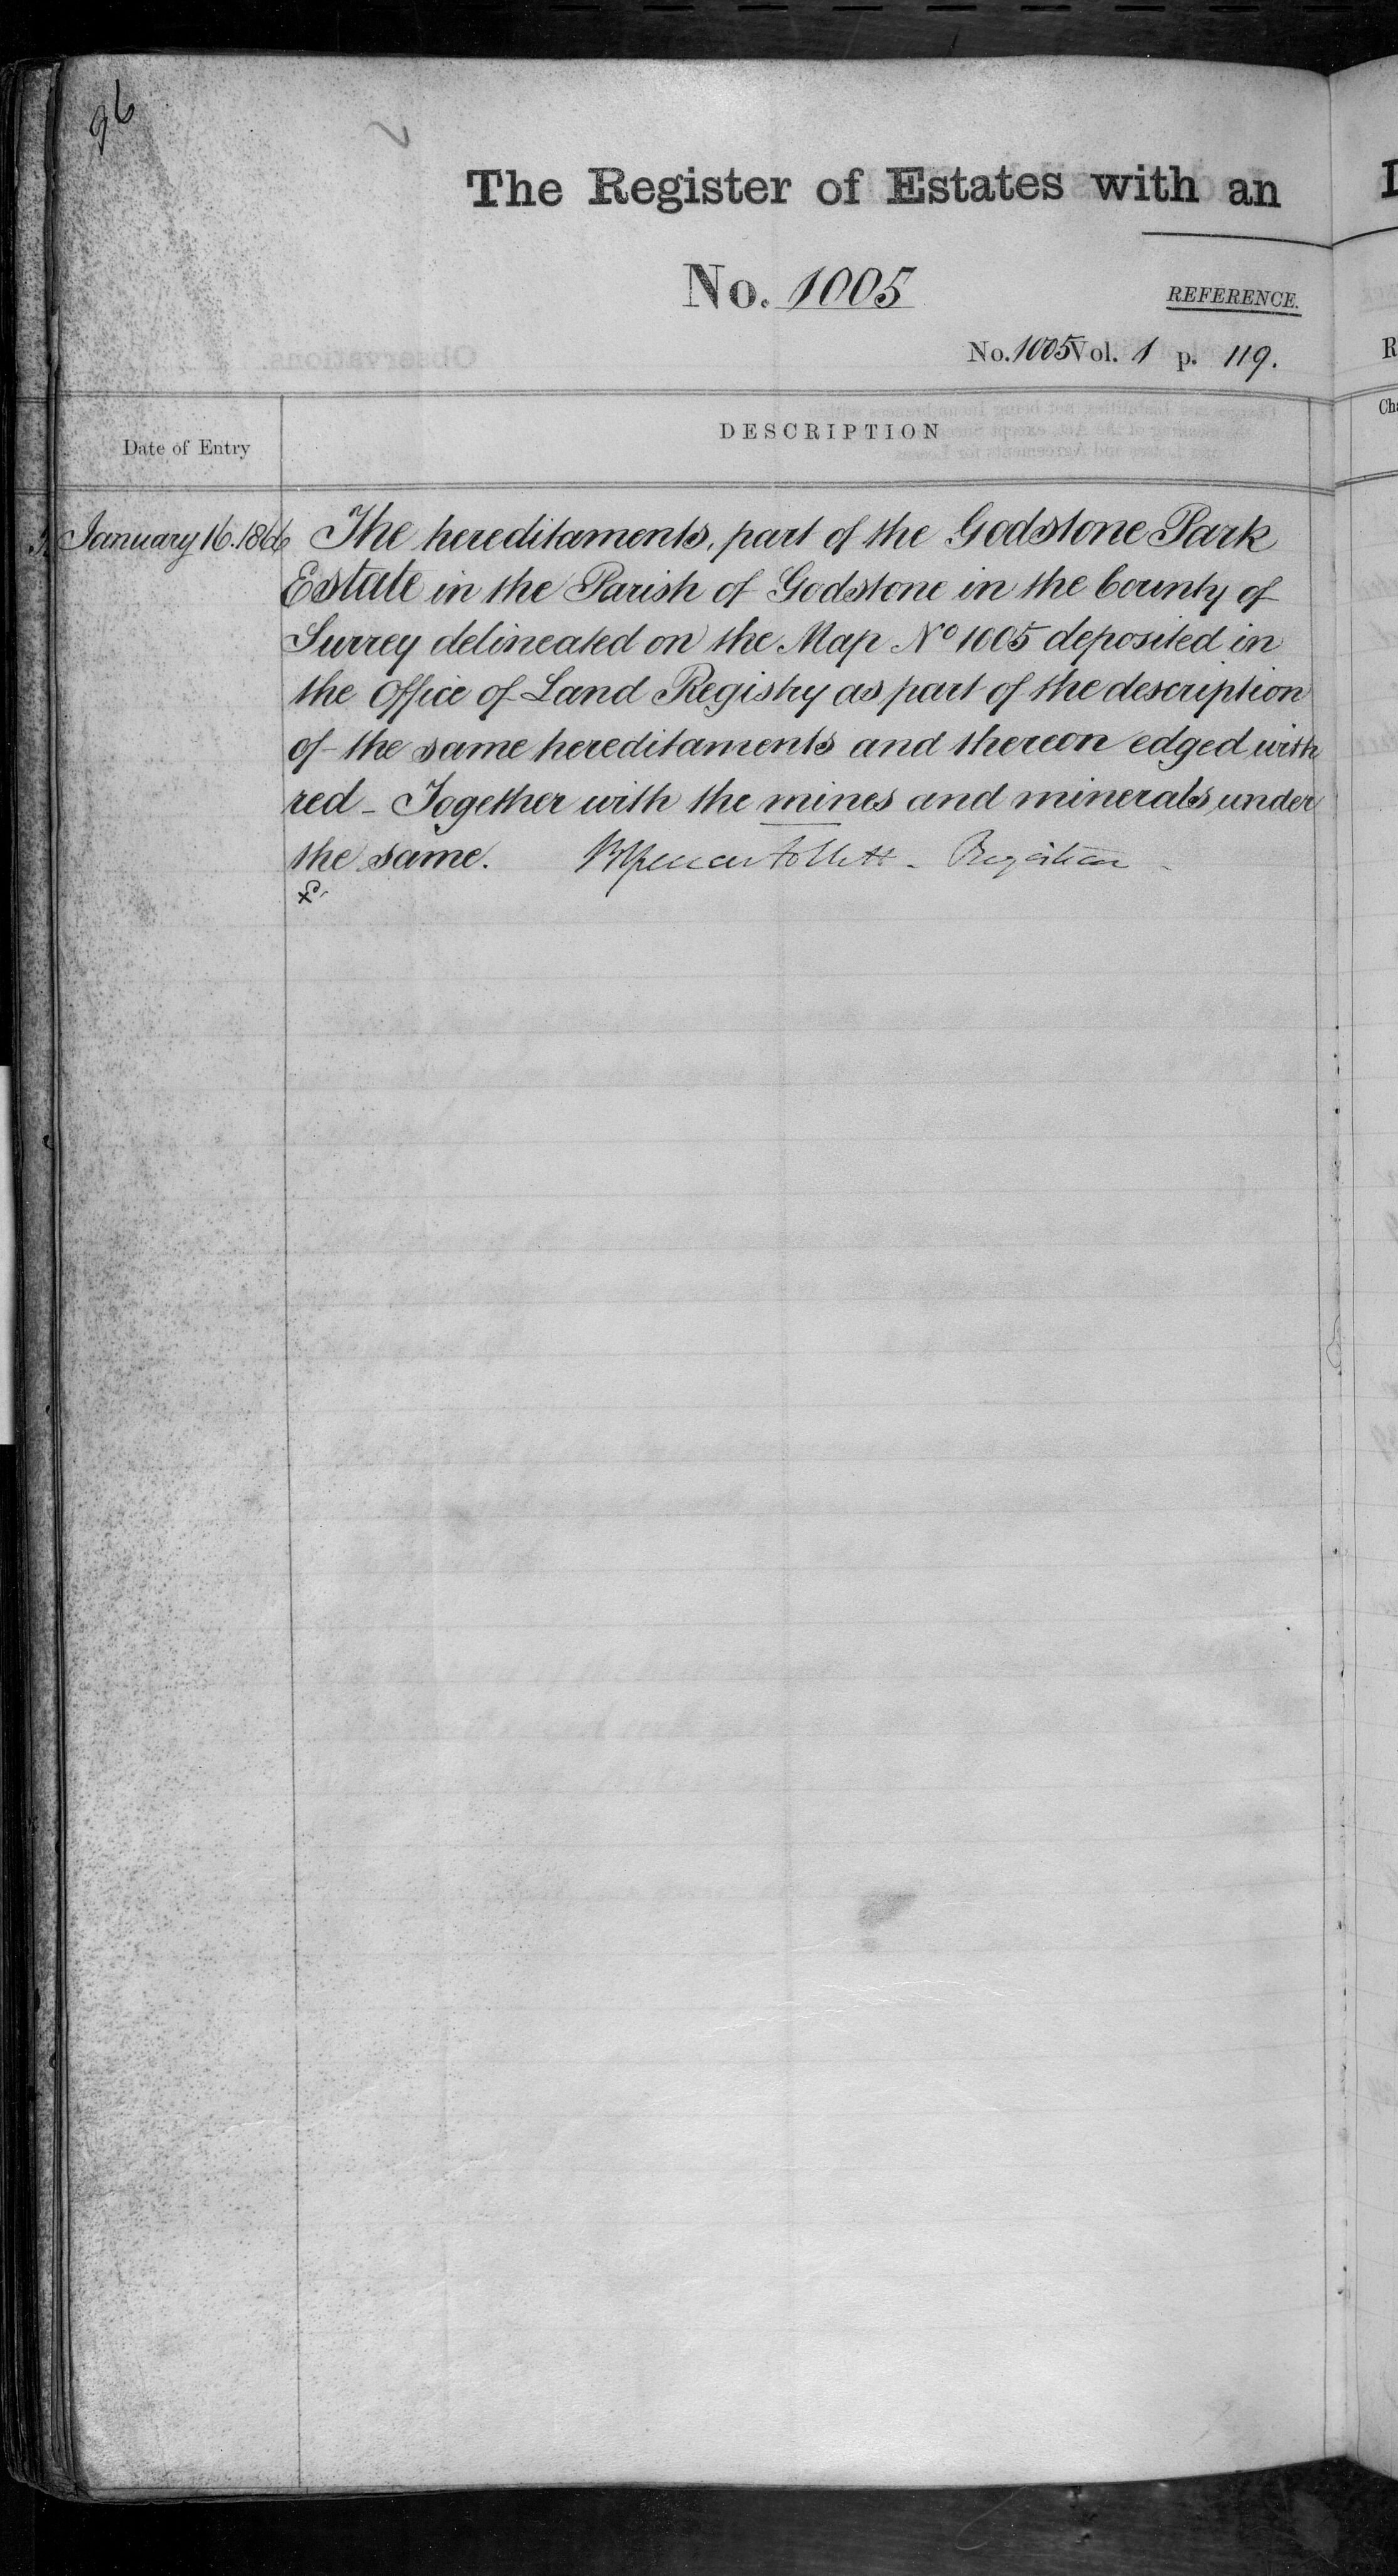 96
The Register of Estates with an
No. 1005
REFERENCE.
No. 1005 Vol. 1 p. 119.
Date of Entry
DESCRIPTION
January 16. 1866
The hereditaments, part of the Godstone Park
Estate in the Parish of Godstone in the County of
Surrey delineated on the Map No 1005 deposited in
the Office of Land Registry as part of the description
of the same hereditaments and thereon edged with
red - Together with the mines and minerals under
the same. Spencer Follett - Registrar -